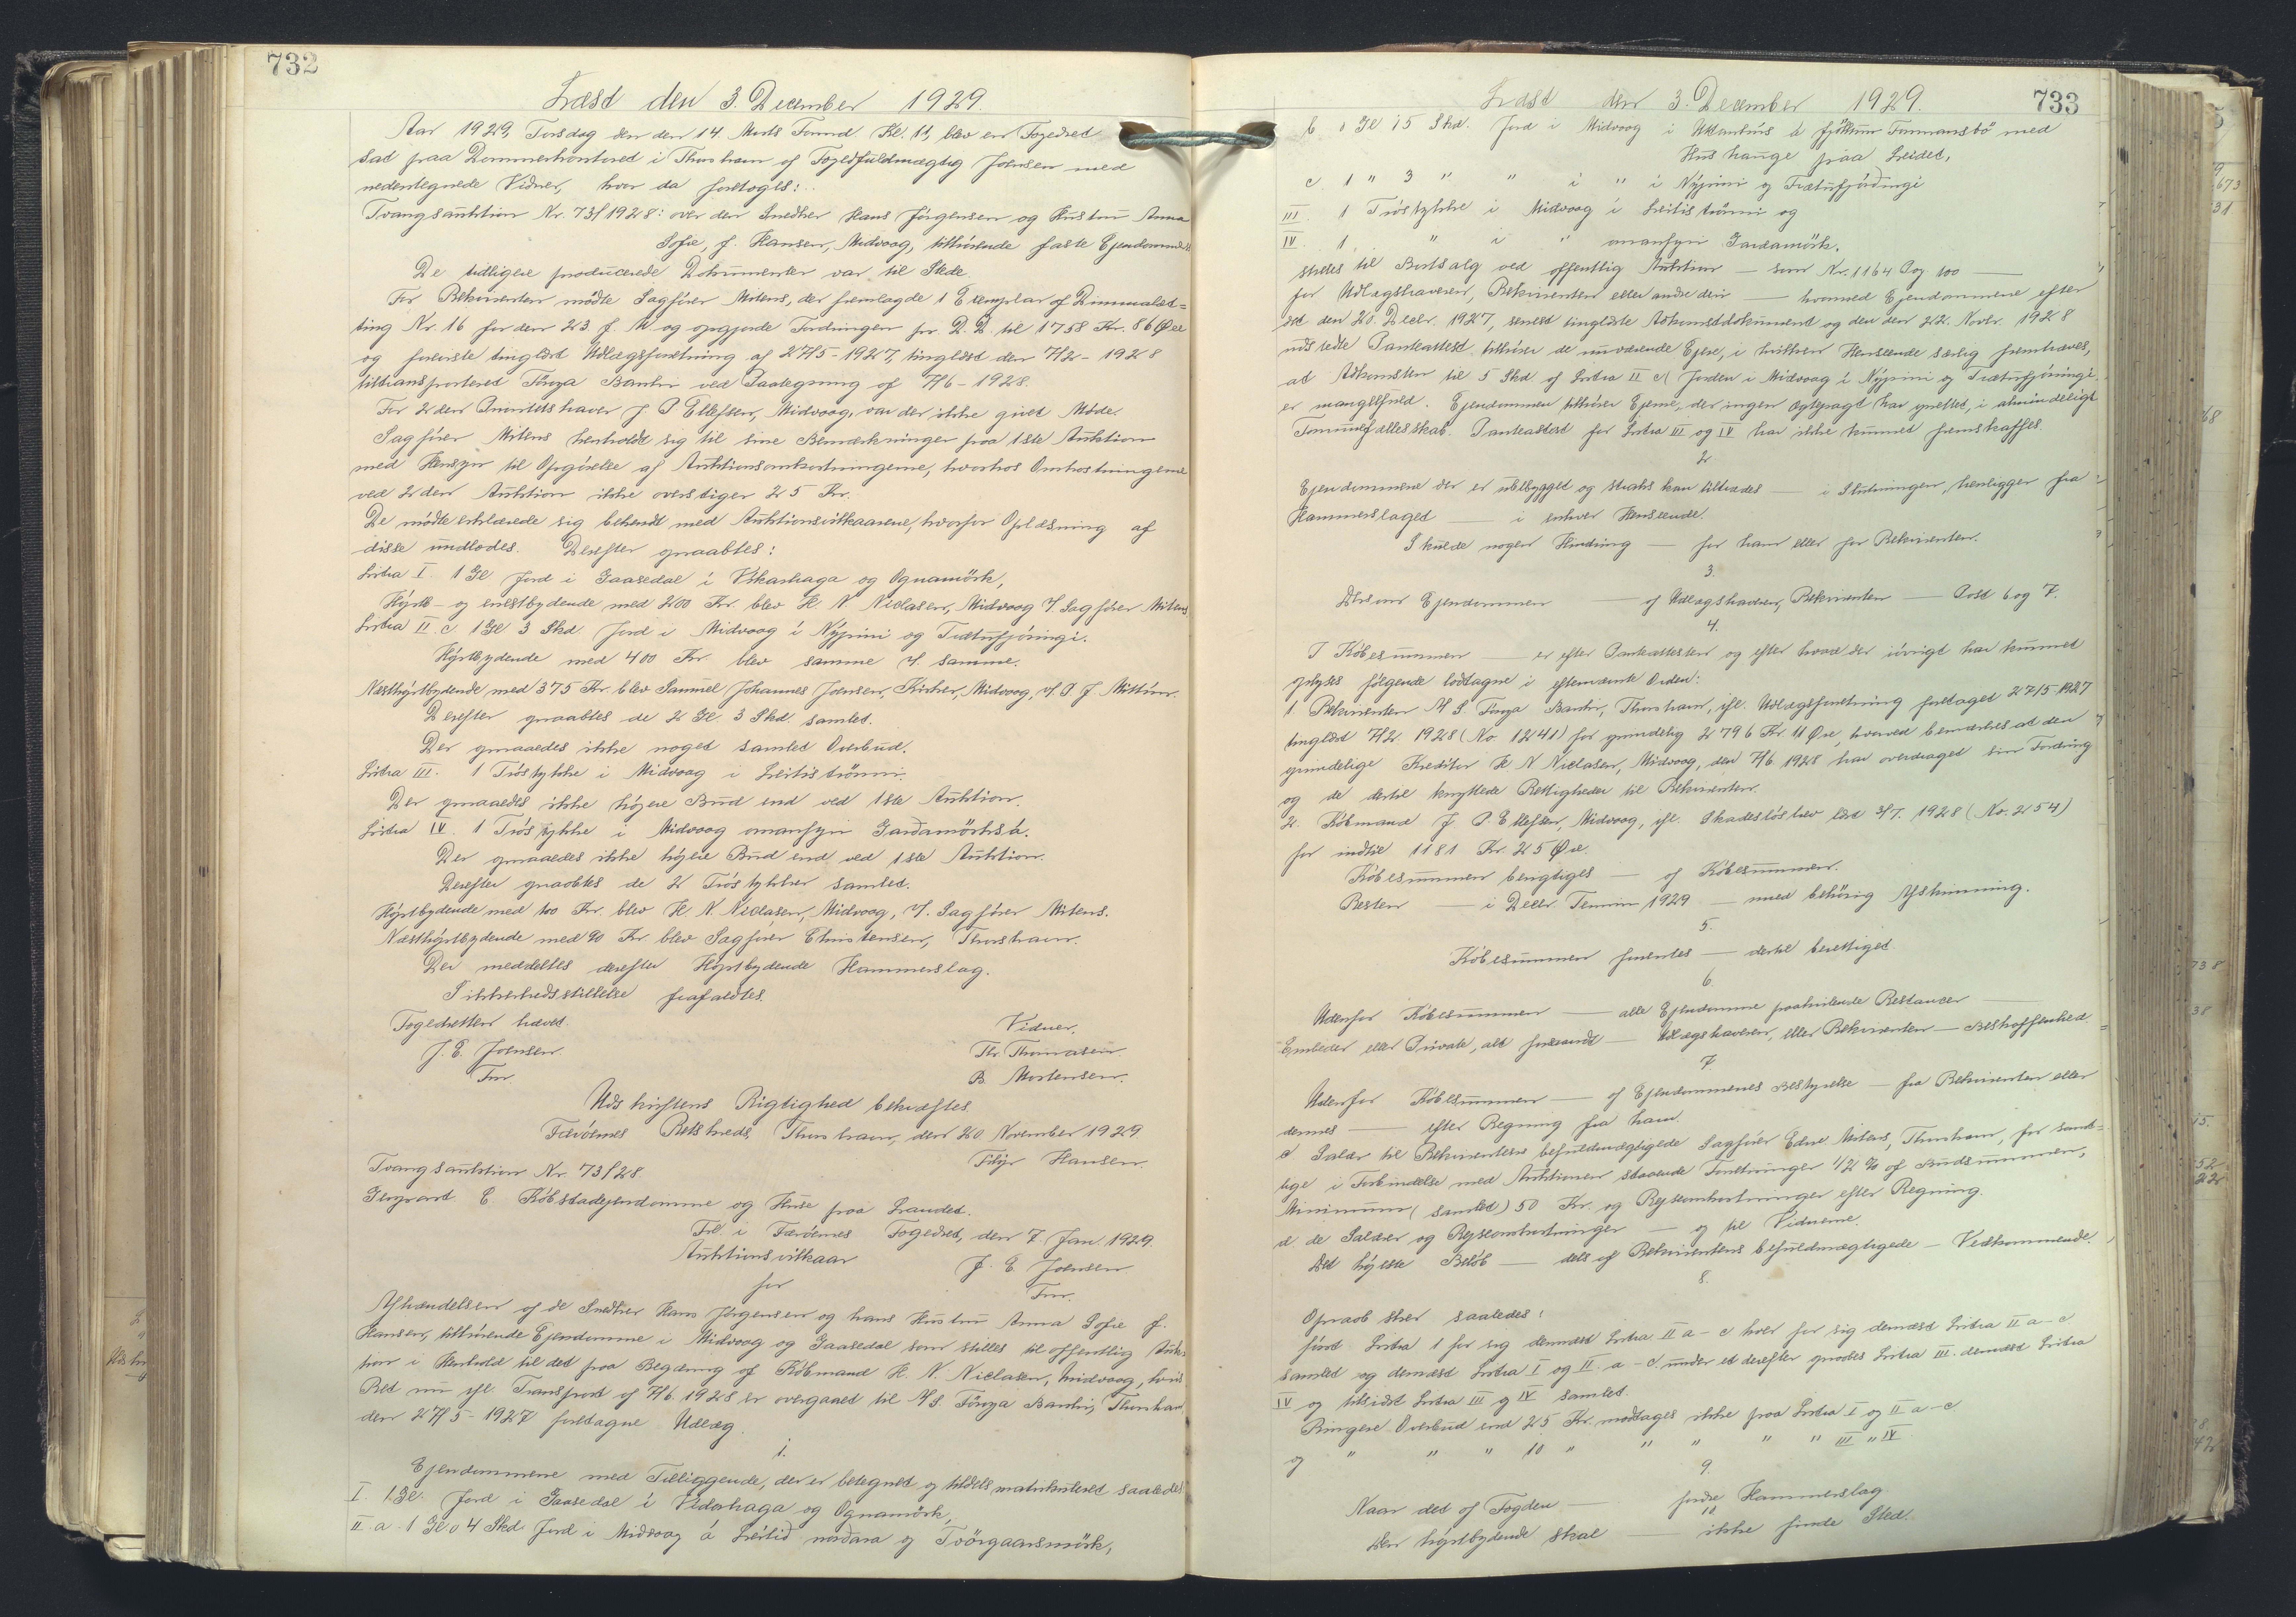 732
Læst den 3. December 1929.
Aar 1929, Torsdag den den 14. Marts Formd. Kl. 11, blev en Fogedret
sat paa Dommerkontoret i Thorshavn af Fogedfuldmægtig Joensen med
nedentegnede Vidner, hvor da foretoges:
Tvangsauktion Nr. 73/1928: over den Snedker Hans Jørgensen og Hustru Anna
Sofie, f. Hansen, Midvaag, tilhørende faste Ejendomme
De tidligere producerede Dokumenter var til Stede.
For Rekvirenten mødte Sagfører Mitens, der fremlagde 1 Exemplar af Dimmalæt=
ting Nr. 16 for den 23. f. M. og opgjorde Fordringen pr. D. D. til 1758 Kr. 86 Øre
og foreviste tinglæst Udlægsforretning af 27/5-1927, tinglæst den 7/2-1928
tiltransporteret Føroya Banki ved Paategning af 7/6-1928.
For 2den Prioritetshaver J. P. Ellefsen, Midvaag, var der ikke givet Møde.
Sagfører Mitens henholdt sig til sine Bemærkninger paa 1ste Auktion
med Hensyn til Opgørelse af Auktionsomkostningerne, hvorhos Omkostningerne
ved 2den Auktion ikke overstiger 25 Kr.
De mødte erklærede sig bekendt med Auktionsvilkaarene, hvorfor Oplæsning af
disse undlodes. Derefter opraabtes:
Litra I. 1 Gl Jord i Gaasedal i Vikarhaga og Ognamörk,
Højst- og enestbydende med 200 Kr. blev H. N. Niclasen, Midvaag v. Sagfører Mitens
Litra II. c. 1 Gl 3 Skd. Jord i Midvaag i Nýpini og Trætufjóringi.
Højstbydende med 400 Kr. blev samme v. samme.
Næsthøjstbydende med 375 Kr. blev Samuel Johannes Joensen, Kirker, Midvaag, v. P. J.
Derefter opraabtes de 2 Gl. 3 Skd. samlet.
Der opnaaedes ikke noget samlet Overbud.
Litra III. 1 Tróstykke i Midvaag i Leitiströnni.
Der opnaaedes ikke højere Bud end ved 1ste Auktion.
Litra IV. 1 Tróstykke i Midvaag omanfyri Gardamörksá.
Der opnaaedes ikke højere Bud end ved 1ste Auktion.
Derefter opraabtes de 2 Tróstykker samlet.
Højstbydende med 100 Kr. blev H. N. Niclasen, Midvaag, v. Sagfører Mitens.
Næsthøjstbydende med 90 Kr blev Sagfører Christensen, Thorshavn.
Der meddeltes derefter Højstbydende Hammerslag.
Sikkerhedsstillelse frafaldtes.
Fogedretten hævet.
J. E. Joensen.
Fm.
Vidner.
Thr. Thomasen.
B. Mortensen.
Udskriftens Rigtighed bekræftes.
Færøernes Retskreds, Thorshavn, den 20. November 1929
Hansen.
Tvangsauktion Nr. 73/28.
Genpart. C. Købstadejendomme og Huse paa Landet.
Frl. i Færøernes Fogedret, den 7. Jan. 1929.
Auktionsvilkaar
J. E. Joensen
for
Fm.
Afhændelsen af de Snedker Hans Jørgensen og hans Hustru Anna Sofie f.
Hansen, tilhørende Ejendomme i Midvaag og Gaasedal som stilles til offentlig Auk-
tion i Henhold til det paa Begæring af Købmand H. N. Niclasen, Midvaag, hvis
Ret nu ifl. Transport af 7/6 1928 er overgaaet til A/S. Føroya Banki, Thorshavn
den 27/5-1927 foretagne Udlæg.
1.
Ejendommene med Tilliggende, der er betegnet og tildels matrikuleret saaledes
I. 1 Gl. Jord i Gaasedal i Vidarhaga og Ognamörk,
II. a. 1 Gl. 04 Skd. Jord i Midvaag á Leitið nordara og Tvörgaarsmörk,
733
Læst den 3. December 1929.
b 0 Gl 15 Skd. Jord i Midvaag i Uttanhús á fjöllum Tormansbö med
Hus hauge paa Leidet,
c. 1 " 3 " " i " i Nýpini og Trætufjórðingi
III. 1 Tróstykke i Midvaag i Leitiströnni og
IV. 1 " i " omanfyri Gardamörk.
stilles til Bortsalg ved offentlig Auktion — som Nr. 1164 Pag. 100 —
for Udlægshaveren, Rekvirenten eller andre den — hvormed Ejendommene efter
det den 20. Decbr. 1927, senest tinglæste Adkomstdokument og den den 22. Novbr. 1928
udstedte Panteattest tilhører de nuværende Ejere, i hvilken Henseende særlig fremhæves,
at Adkomsten til 5 Skd. af Litra II c/ Jorden i Midvaag i Nýpini og Trætufjóringi
er mangelfuld. Ejendommen tilhører Ejerne, der ingen Ægtepagt har oprettet, i almindeligt
Formuefællesskab. Panteattest for Litra III og IV har ikke kunnet fremskaffes.
2.
Ejendommene der er ubebygget og straks kan tiltrædes — i Slutningen, henligger fra
Hammerslaget — i enhver Henseende.
Skulde nogen Hindring — for ham eller for Rekvirenten.
3.
Dersom Ejendommen — af Udlægshaveren, Rekvirenten — Post 6 og 7.
4.
I Købesummen — er efter Panteattesten og efter hvad der iøvrigt har kunnet
oplyses følgende lodtagne i eftermærkte Orden:
1. Rekvirenten A/S. Føroya Banki, Thorshavn, ifl. Udlægsforretning foretaget 27/5-1927
tinglæst 7/2. 1928 (No. 1241) for oprindelig 2796 Kr. 11 Øre, hvorved bemærkes at den
oprindelige Kreditor H. N. Niclasen, Midvaag, den 7/6 1928 har overdraget sin Fordring
og de dertil knyttede Rettigheder til Rekvirenten.
2. Købmand J. P. Ellefsen, Midvaag, ifl. Skadesløsbrev læst 3/7. 1928 (No. 254)
for indtil 1181 Kr. 25 Øre.
Købesummen berigtiges — af Købesummen.
Resten — i Decbr Termin 1929 — med behørig Afskrivning.
5.
Købesummen forrentes — dertil berettiget.
6.
Udenfor Købesummen — alle Ejendomme paahvilende Restancer —
Embeder eller Private, alt foresaavidt — Udlægshaveren, eller Rekvirenten — Beskaffenhed.
7.
Udenfor Købesummen — af Ejendommenes Bestyrelse — fra Rekvirenten eller
dennes — efter Regning fra ham.
c. Salær til Rekvirentens befuldmægtigede Sagfører Edw. Mitens, Thorshavn, for samt=
lige i Forbindelse med Auktionen staaende Forretninger 1/2 % af Budsummen,
Minimum (samlet) 50 Kr. og Rejseomkostninger efter Regning.
d. de Salærer og Rejseomkostninger — og til Vidnerne.
Det højeste Beløb — dels af Rekvirentens befuldmægtigede — Vedkommende.
8.
Opraab sker saaledes:
først Litra 1 for sig dernæst Litra II a-c hver for sig dernæst Litra II a-c
samlet og dernæst Litra I og II. a-c. under et derefter opraabes Litra III. dernæst Litra
IV og tilsidst Litra III og IV samlet.
Ringere Overbud end 25 Kr. modtages ikke paa Litra I og II a-c
og " " " 10 " " " " " III " IV
9.
Naar det af Fogden — fordre Hammerslag
10.
Den højstbydende skal — ikke finde Sted.